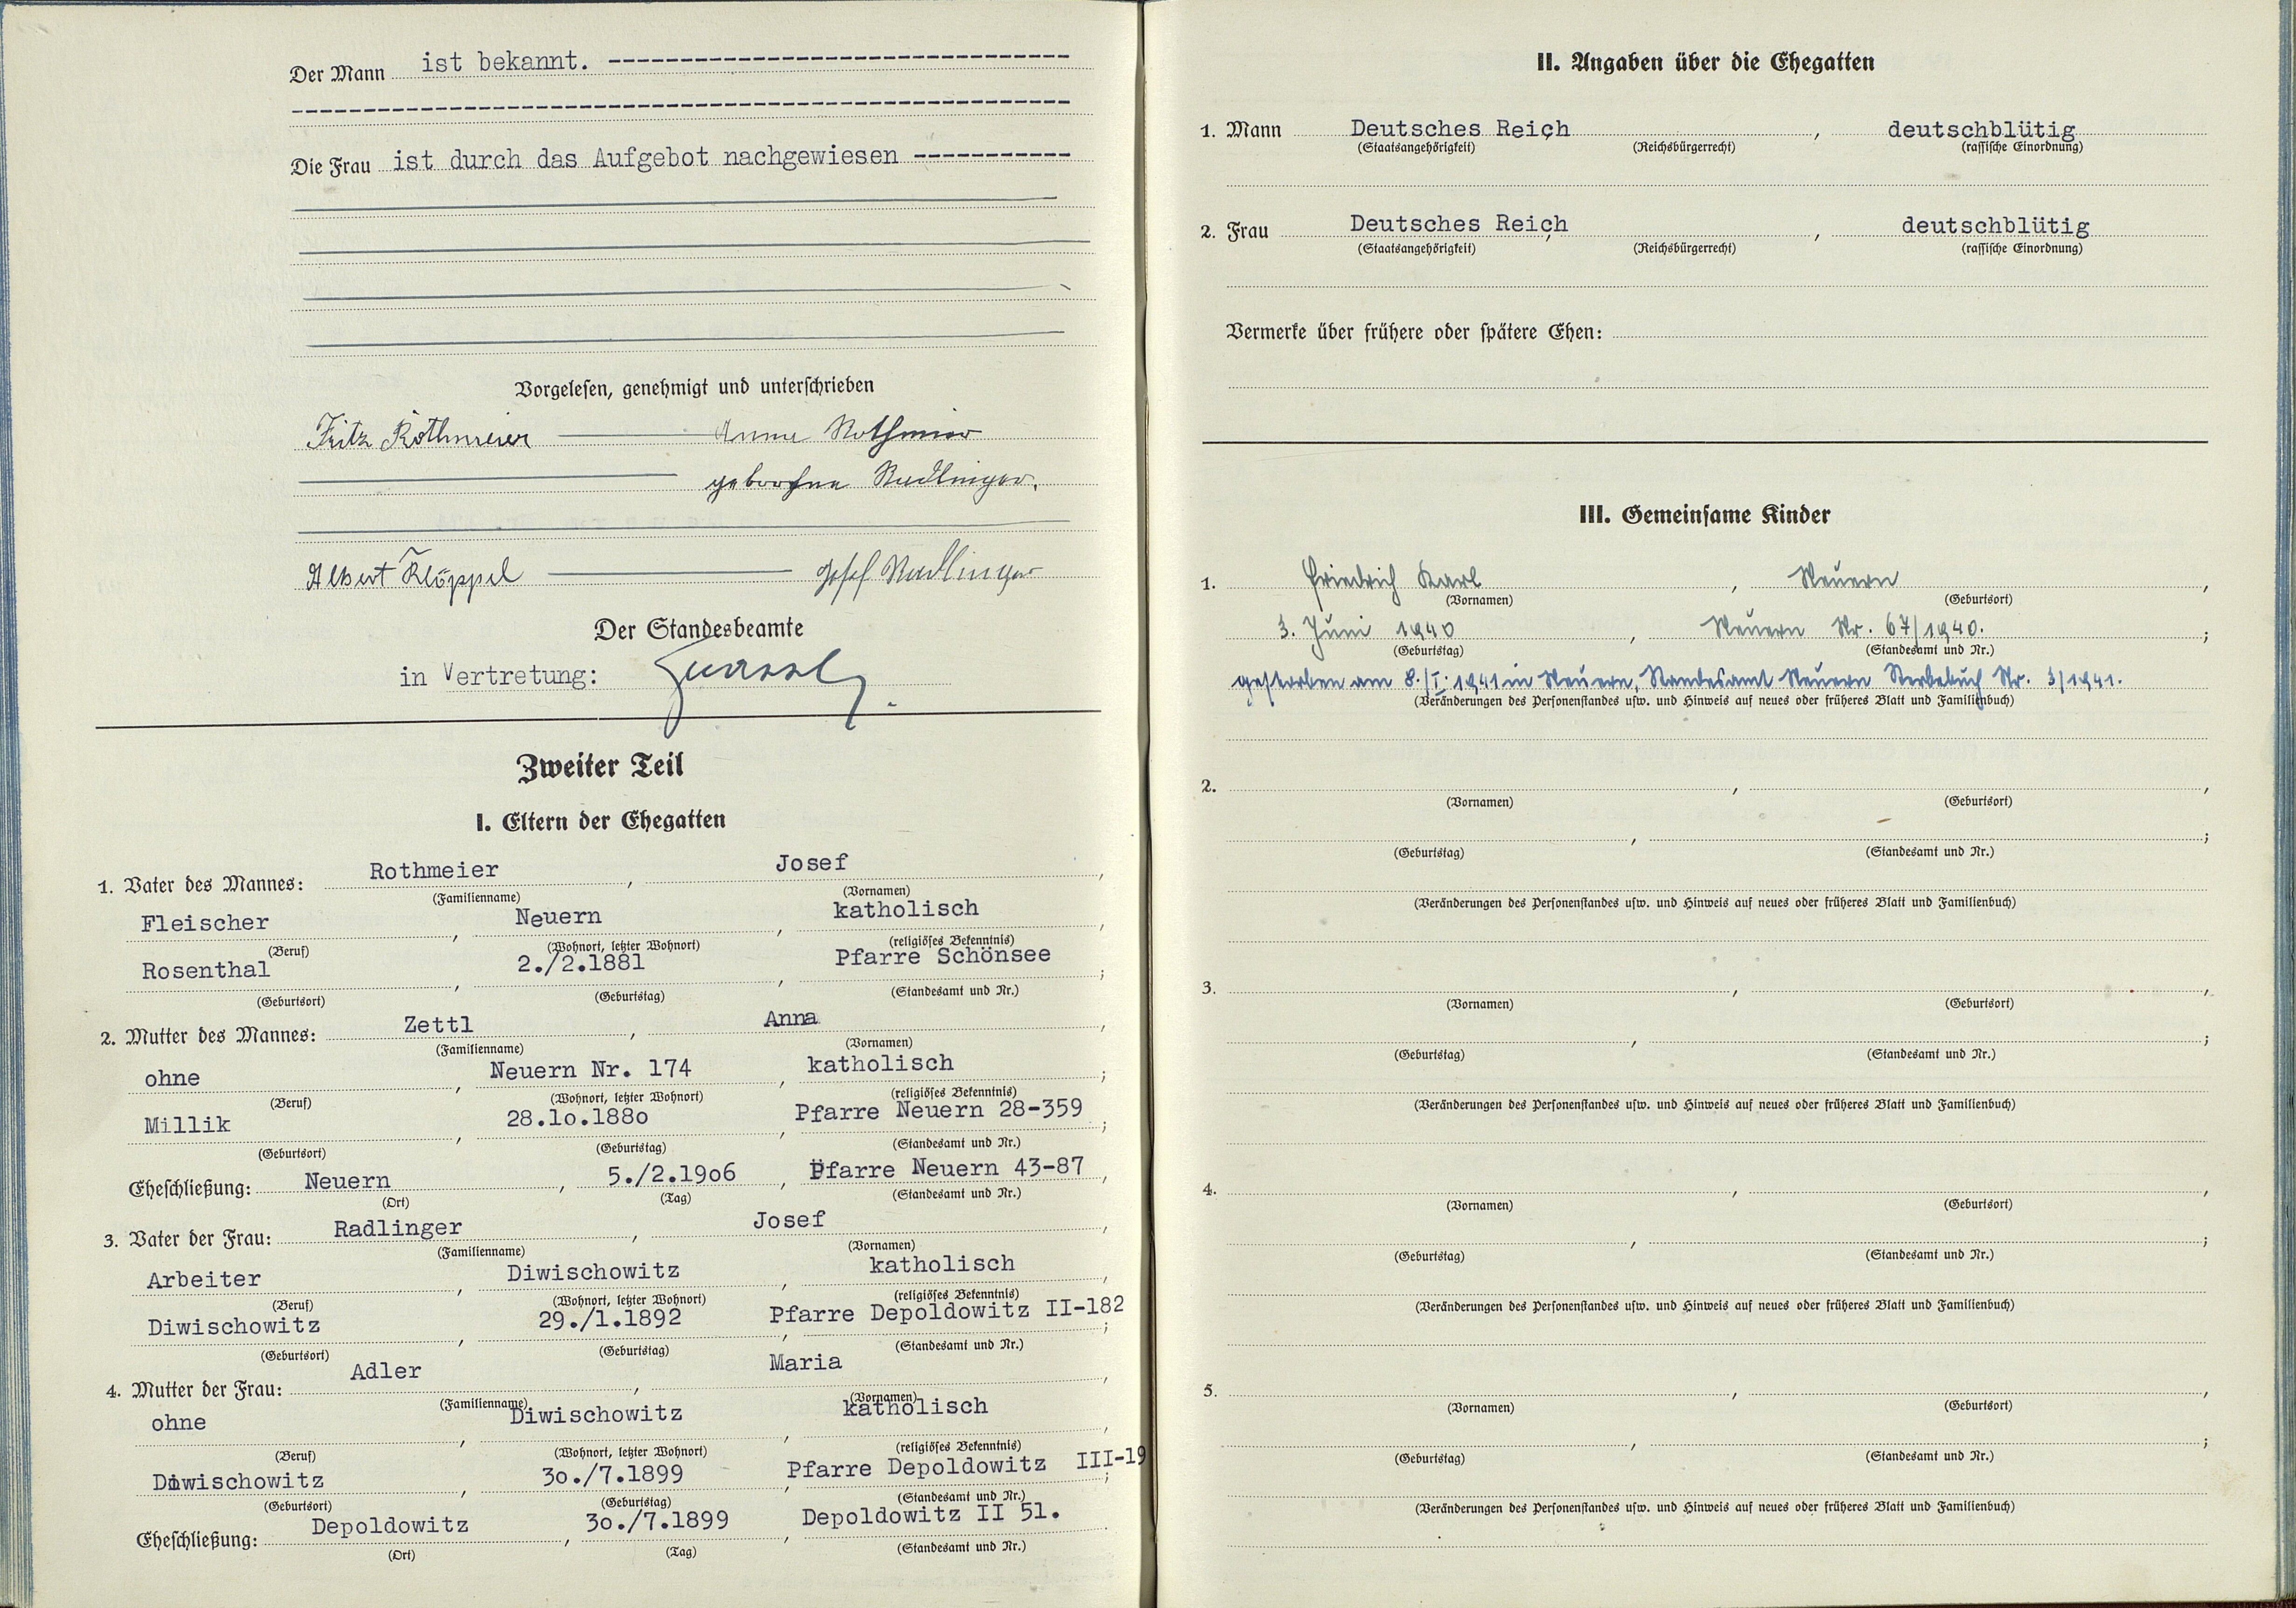 Der Mann ist bekannt. ------------------------------
Die Frau ist durch das Aufgebot nachgewiesen -----------
Vorgelesen, genehmigt und unterschrieben
Fritz Rothmeier — Anna Rothmeier
geborene Radlinger.
Albert Klöppel — Josef Radlinger
Der Standesbeamte
in Vertretung:
Zweiter Teil
I. Eltern der Ehegatten
1. Vater des Mannes: Rothmeier, Josef,
(Familienname) (Vornamen)
Fleischer, Neuern, katholisch,
(Beruf) (Wohnort, letzter Wohnort) (religiöses Bekenntnis)
Rosenthal, 2./2.1881, Pfarre Schönsee;
(Geburtsort) (Geburtstag) (Standesamt und Nr.)
2. Mutter des Mannes: Zettl, Anna,
(Familienname) (Vornamen)
ohne, Neuern Nr. 174, katholisch;
(Beruf) (Wohnort, letzter Wohnort) (religiöses Bekenntnis)
Millik, 28.1o.188o, Pfarre Neuern 28-359;
(Geburtsort) (Geburtstag) (Standesamt und Nr.)
Eheschließung: Neuern, 5./2.19o6, Pfarre Neuern 43-87,
(Ort) (Tag) (Standesamt und Nr.)
3. Vater der Frau: Radlinger, Josef,
(Familienname) (Vornamen)
Arbeiter, Diwischowitz, katholisch,
(Beruf) (Wohnort, letzter Wohnort) (religiöses Bekenntnis)
Diwischowitz, 29./1.1892, Pfarre Depoldowitz II-182;
(Geburtsort) (Geburtstag) (Standesamt und Nr.)
4. Mutter der Frau: Adler, Maria,
(Familienname) (Vornamen)
ohne, Diwischowitz, katholisch,
(Beruf) (Wohnort, letzter Wohnort) (religiöses Bekenntnis)
Diwischowitz, 3o./7.1899, Pfarre Depoldowitz III-19;
(Geburtsort) (Geburtstag) (Standesamt und Nr.)
Eheschließung: Depoldowitz, 3o./7.1899, Depoldowitz II 51.
(Ort) (Tag) (Standesamt und Nr.)
II. Angaben über die Ehegatten
1. Mann Deutsches Reich, , deutschblütig
(Staatsangehörigkeit) (Reichsbürgerrecht) (rassische Einordnung)
2. Frau Deutsches Reich, , deutschblütig
(Staatsangehörigkeit) (Reichsbürgerrecht) (rassische Einordnung)
Vermerke über frühere oder spätere Ehen:
III. Gemeinsame Kinder
1. Friedrich Karl, Neuern,
(Vornamen) (Geburtsort)
3. Juni 1940, Neuern Nr. 67/1940.;
(Geburtstag) (Standesamt und Nr.)
gestorben am 8./I. 1941 in Neuern, Standesamt Neuern Sterbebuch Nr. 3/1941.
(Veränderungen des Personenstandes usw. und Hinweis auf neues oder früheres Blatt und Familienbuch)
2. , ,
(Vornamen) (Geburtsort)
, ;
(Geburtstag) (Standesamt und Nr.)
(Veränderungen des Personenstandes usw. und Hinweis auf neues oder früheres Blatt und Familienbuch)
3. , ,
(Vornamen) (Geburtsort)
, ;
(Geburtstag) (Standesamt und Nr.)
(Veränderungen des Personenstandes usw. und Hinweis auf neues oder früheres Blatt und Familienbuch)
4. , ,
(Vornamen) (Geburtsort)
, ;
(Geburtstag) (Standesamt und Nr.)
(Veränderungen des Personenstandes usw. und Hinweis auf neues oder früheres Blatt und Familienbuch)
5. , ,
(Vornamen) (Geburtsort)
, ;
(Geburtstag) (Standesamt und Nr.)
(Veränderungen des Personenstandes usw. und Hinweis auf neues oder früheres Blatt und Familienbuch)